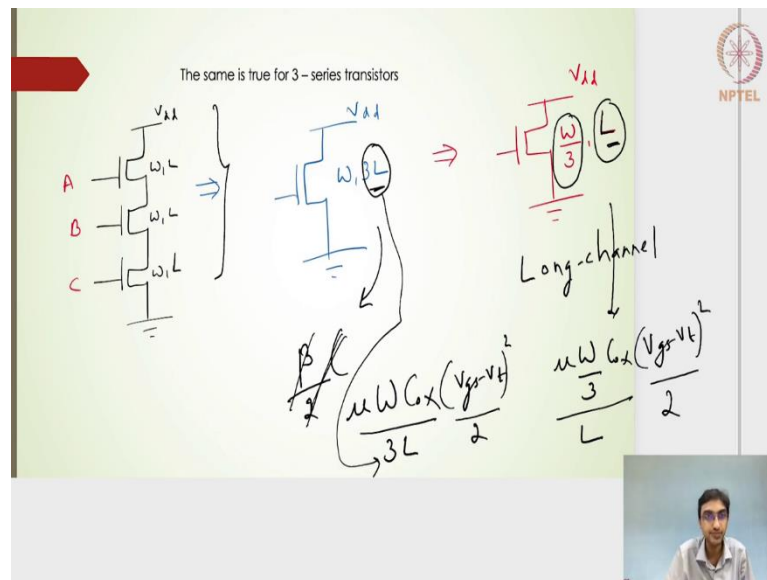 The same is true for 3 – series transistors
NPTEL
Vdd
A
W, L
B
W, L
C
W, L
⇒
Vdd
W, 3L
⇒
Vdd
W/3, L
Long-channel
β/2 (
μ W Cox/3L (Vgs-Vt)²/2
μ W/3 Cox/L (Vgs-Vt)²/2